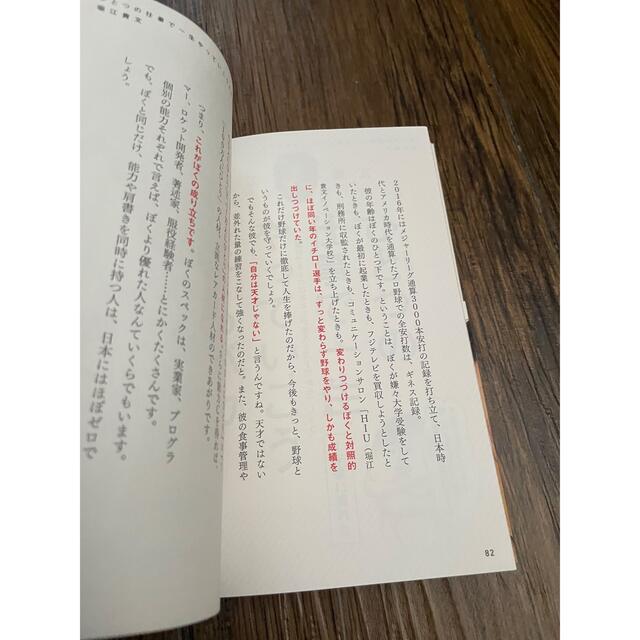 2016年にはメジャーリーグ通算3000本安打の記録を打ち立て、日本時
代とアメリカ時代を通算したプロ野球での全安打数は、ギネス記録。
彼の年齢はぼくのひとつ下です。ということは、ぼくが嫌々大学受験をして
いたときも、ぼくが最初に起業したときも、フジテレビを買収しようとしたと
きも、刑務所に収監されたときも、コミュニケーションサロン「HIU(堀江
貴文イノベーション大学校)」を立ち上げたときも。変わりつづけるぼくと対照的
に、ほぼ同い年のイチロー選手は、ずっと変わらず野球をやり、しかも成績を
出しつづけていた。
これだけ野球だけに徹底して人生を捧げたのだから、今後もきっと、野球と
いうものが彼を守っていくでしょう。
でもそんな彼でも、「自分は天才じゃない」と言うんですね。天才ではない
から、並外れた量の練習をこなして強くなったのだと。また、彼の食事管理や
82
人材のできあがりです。
つまり、これがぼくの成り立ちです。ぼくのスペックは、実業家、プログラ
マー、ロケット開発者、著述家、服役経験者……とにかくたくさんです。
個別の能力それぞれで言えば、ぼくより優れた人なんていくらでもいます。
でも、ぼくと同じだけ、能力や肩書きを同時に持つ人は、日本にはほぼゼロで
しょう。
とつの仕事で一生
堀江貴文